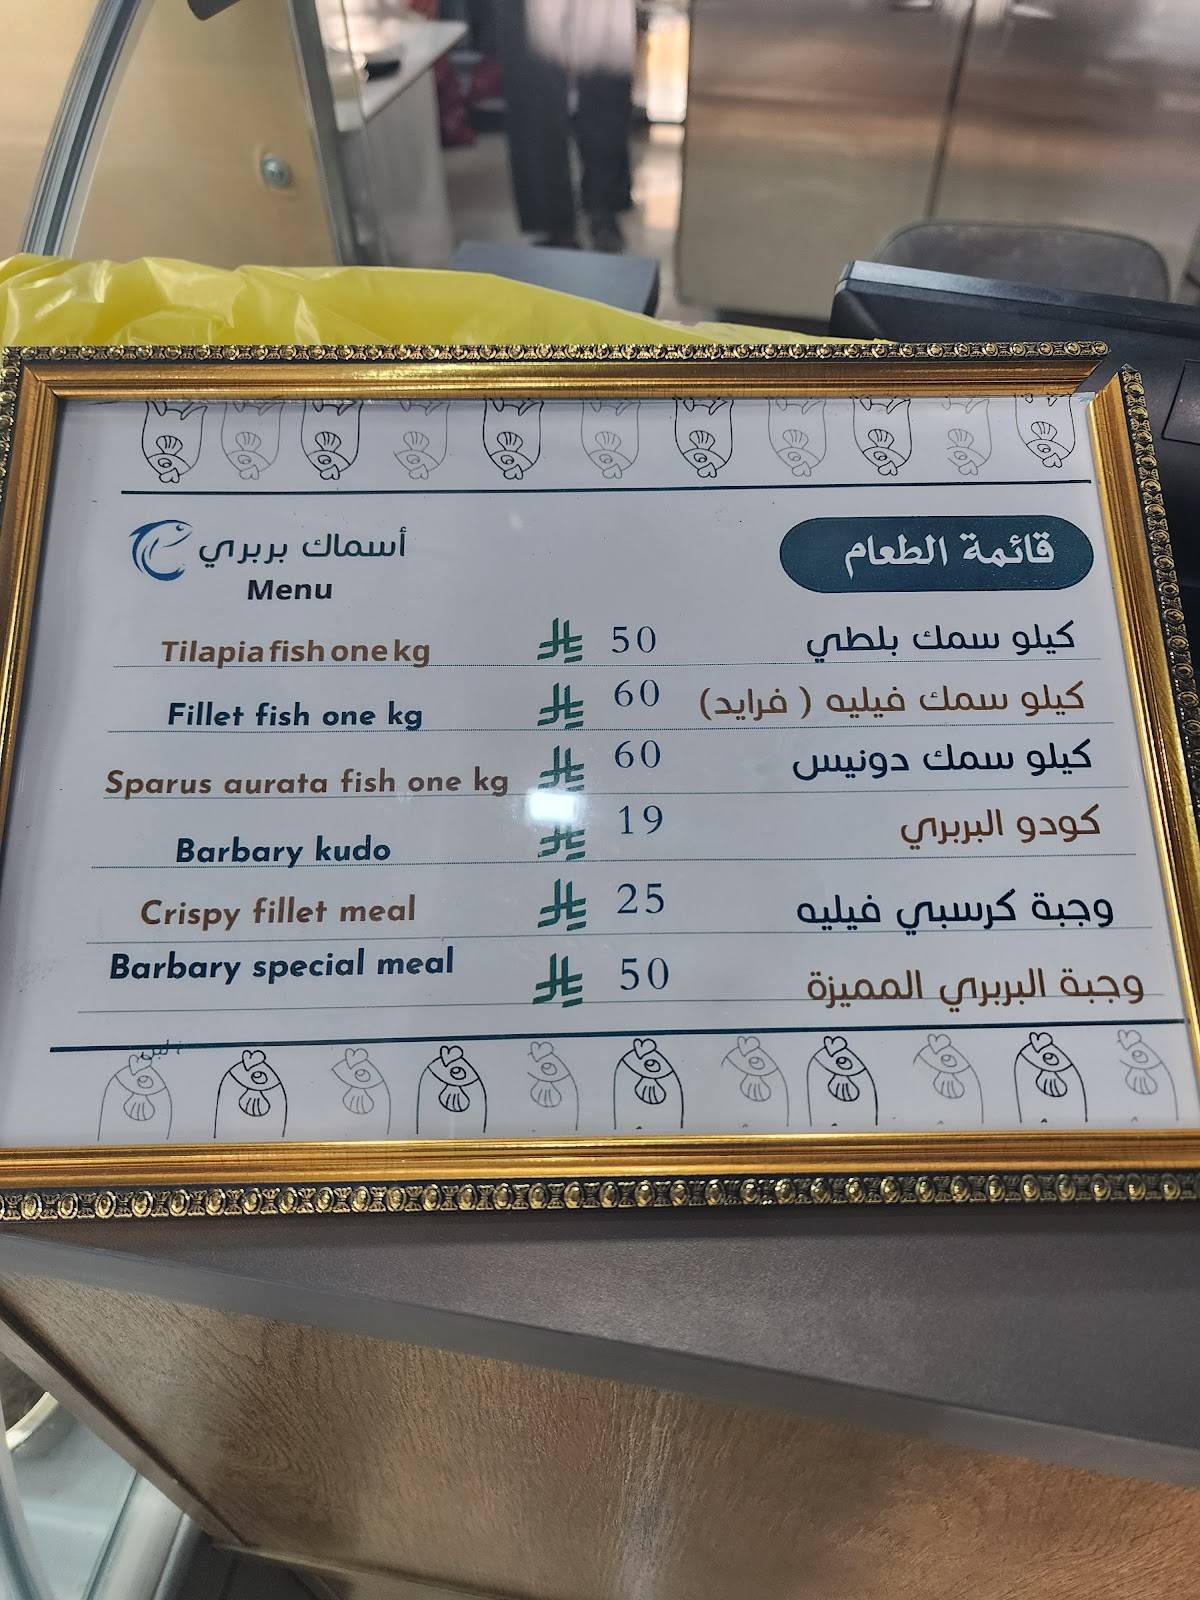 أسماك بربري
Menu
قائمة الطعام
Tilapia fish one kg 50 كيلو سمك بلطي
Fillet fish one kg 60 كيلو سمك فيليه ( فرايد)
Sparus aurata fish one kg 60 كيلو سمك دونيس
Barbary kudo 19 كودو البربري
Crispy fillet meal 25 وجبة كرسبي فيليه
Barbary special meal 50 وجبة البربري المميزة